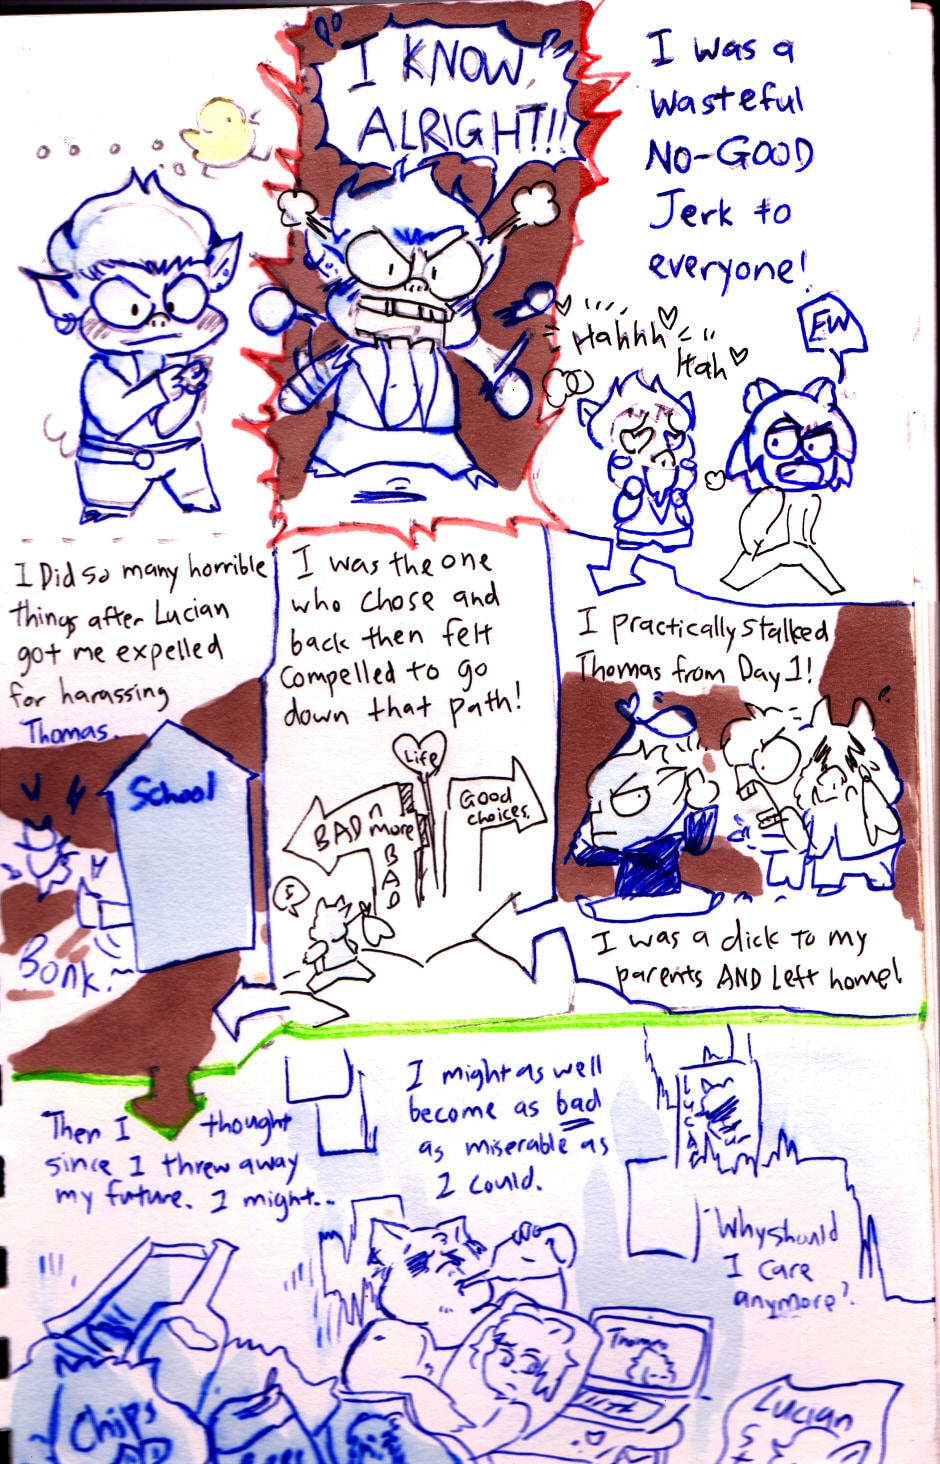 I KNOW,
ALRIGHT!!!
I was a
wasteful
NO-GOOD
Jerk to
everyone!
Hahhh
Hah
EW
I practically stalked
Thomas from Day 1!
I was a dick to my
parents AND Left home!
I was the one
who chose and
back then felt
compelled to go
down that path!
Life
BAD n
more
BAD
Good
choices.
I Did so many horrible
things after Lucian
got me expelled
for harassing
Thomas.
School
Bonk!~
Then I thought
since I threw away
my future. I might...
I might as well
become as bad
as miserable as
I could.
Why should
I care
anymore?
Thomas
Chips
Lucian